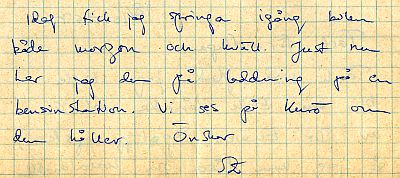 Idag fick jag springa igång bilen
både morgon och kväll. Just nu
har jag den på laddning på en
bensinstation. Vi ses på Kurö om
den håller. Önskar